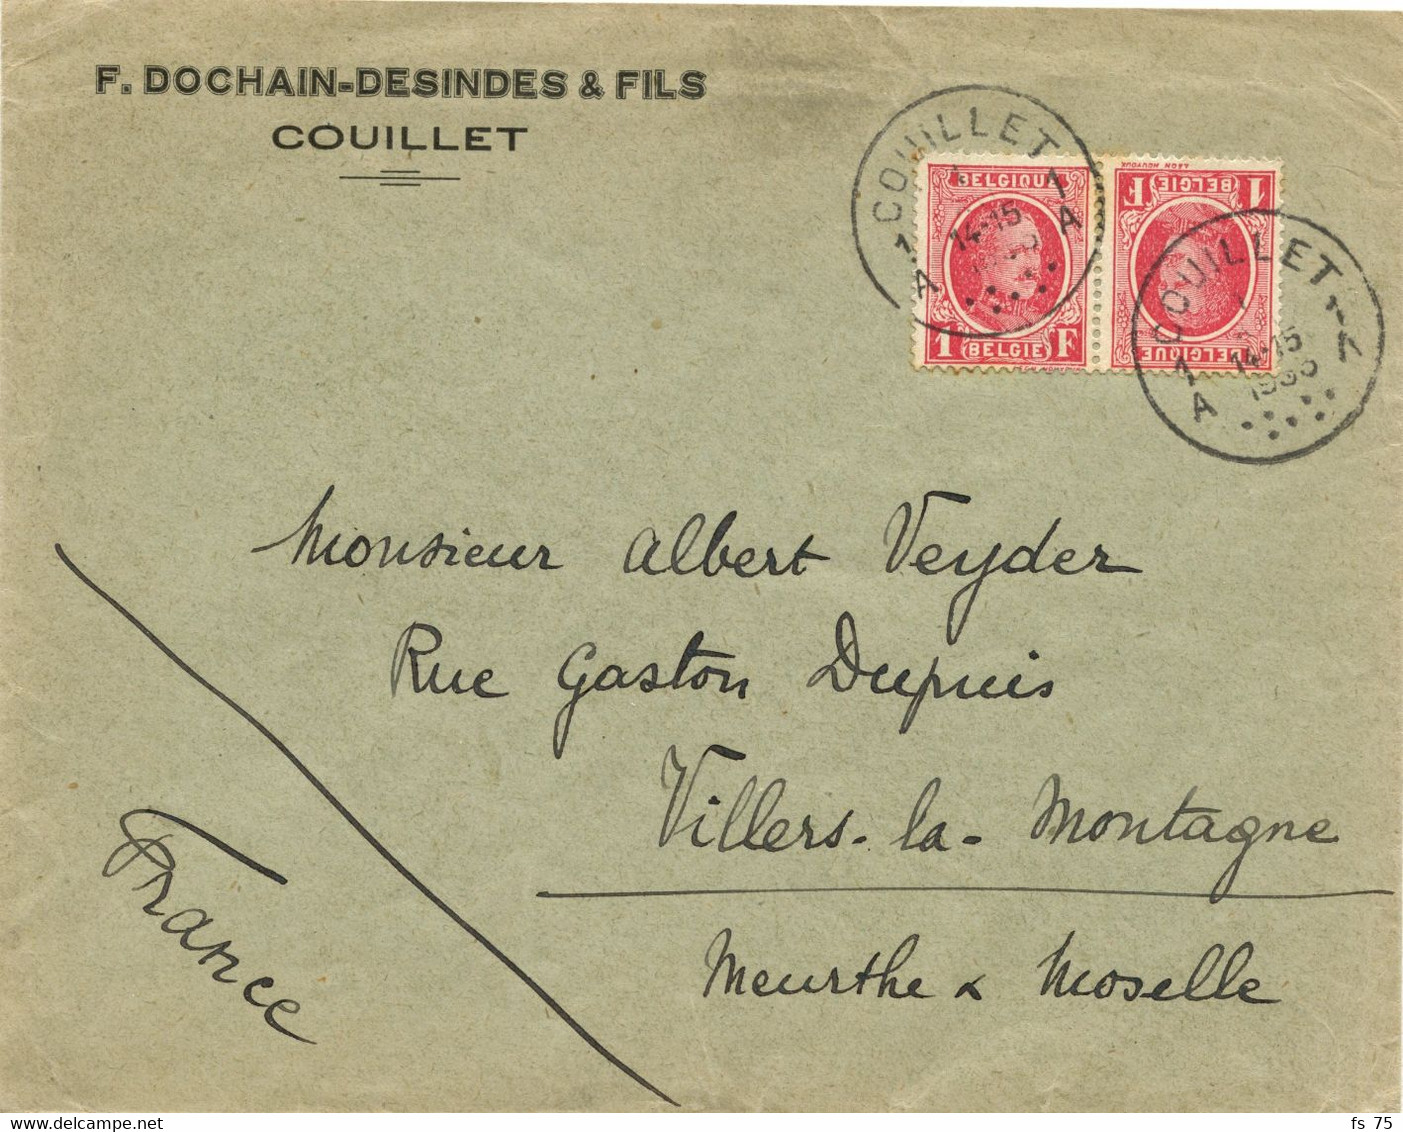 F. DOCHAIN-DESINDES & FILS
COUILLET
COUILLET 1
14-15
1 A
A
BELGIQUE
1 BELGIE F
1 BELGIE F
BELGIQUE
COUILLET 1
14-15
1 A
A
Monsieur Albert Veyder
Rue Gaston Dupuis
Villers-la-Montagne
Meurthe & Moselle
France
delcampe.net
fs_75